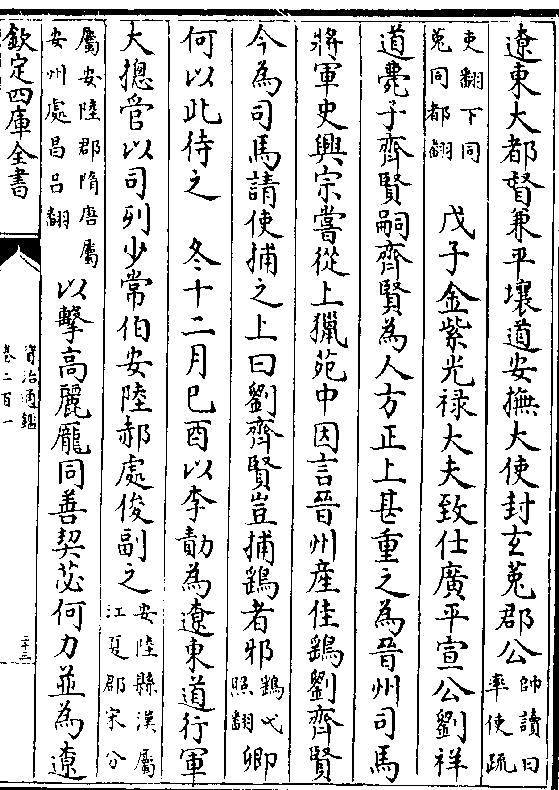 遼東大都督兼平壤道安撫大使封玄菟郡公帥讀曰率使疏
吏翻下同菟同都翻 戊子金紫光祿大夫致仕廣平宣公劉祥
道薨子齊賢嗣齊賢為人方正上甚重之為晉州司馬
將軍史興宗嘗從上獵苑中因言晉州産佳鷂劉齊賢
今為司馬請使捕之上曰劉齊賢豈捕鷂者邪鷂弋照翻卿
何以此待之 冬十二月己酉以李勣為遼東道行軍
大摠管以司列少常伯安陸郝處俊副之安陸縣漢屬江夏郡宋分
屬安陸郡隋唐屬安州處昌呂翻以擊高麗龐同善契苾何力並為遼
欽定四庫全書
資治通鑑
卷二百一
二十三